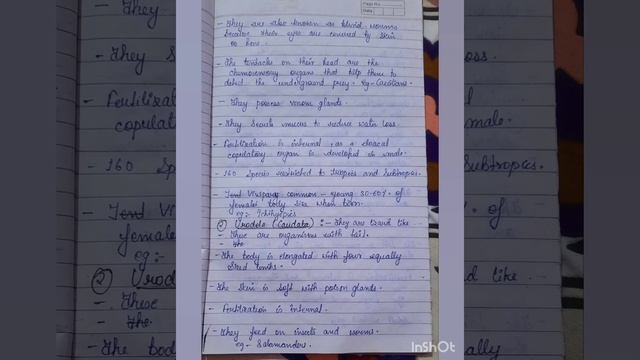 Page No.
Date
- They are also known as blind worms
because their eyes are covered by skin
or bone.
- The tentacles on their head are the
chemosensory organs that help them to
detect the underground prey. eg - Caecilians.
- They possess venom glands.
- They secrete mucus to reduce water loss.
- Fertilization is internal as a cloacal
copulatory organ is developed in male.
- 160 Species restricted to Tropics and Subtropics.
- common - young 30-60% of
female body size when born.
eg :- Ichthyopis
② Urodela (Caudata) :- They are lizard like
- These are organisms with tail.
- The
- The body is elongated with four equally
sized limbs.
- The skin is soft with poison glands.
- Fertilization is internal.
- They feed on insects and worms.
eg - Salamander.
InShOt